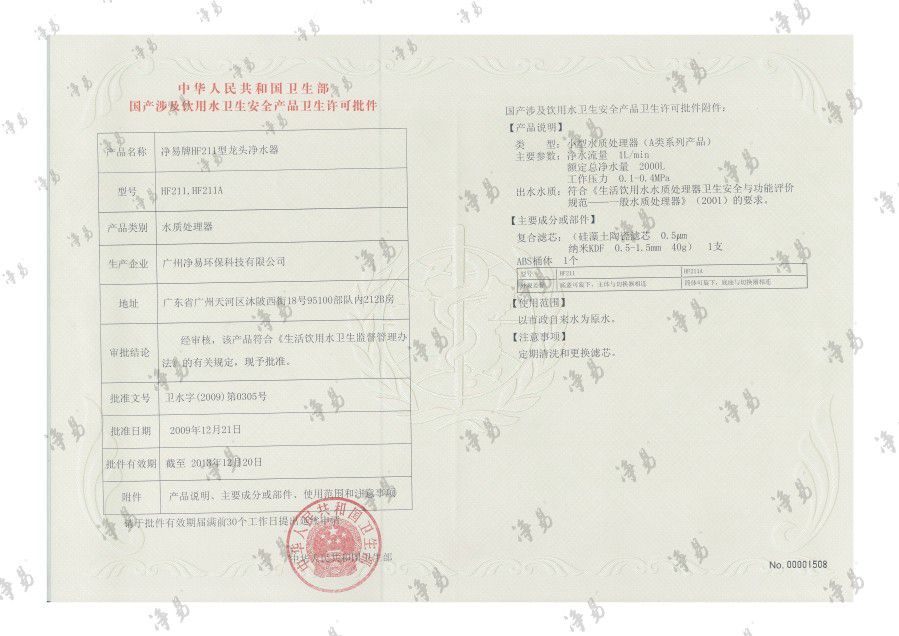 中华人民共和国卫生部
国产涉及饮用水卫生安全产品卫生许可批件
产品名称 净易牌HF211型龙头净水器
型号 HF211,HF211A
产品类别 水质处理器
生产企业 广州净易环保科技有限公司
地址 广东省广州天河区沐陂西街18号95100部队内212B房
审批结论 经审核，该产品符合《生活饮用水卫生监督管理办
法》的有关规定，现予批准。
批准文号 卫水字(2009)第0305号
批准日期 2009年12月21日
批件有效期 截至 2013年12月20日
附件 产品说明、主要成分或部件、使用范围和注意事项
请于批件有效期届满前30个工作日提出延续申请
中华人民共和国卫生部
中华人民共和国卫生部
国产涉及饮用水卫生安全产品卫生许可批件附件：
【产品说明】
类 型：小型水质处理器（A类系列产品）
主要参数：净水流量 1L/min
额定总净水量 2000L
工作压力 0.1-0.4MPa
出水水质：符合《生活饮用水水质处理器卫生安全与功能评价
规范——一般水质处理器》（2001）的要求。
【主要成分或部件】
复合滤芯：（硅藻土陶瓷滤芯 0.5μm
纳米KDF 0.5-1.5mm 40g） 1支
ABS桶体 1个
型号 HF211 HF211A
外观差异 底盖可旋下，主体与切换阀相连 筒体可旋下，底座与切换阀相连
【使用范围】
以市政自来水为原水。
【注意事项】
定期清洗和更换滤芯。
No. 00001508
净易